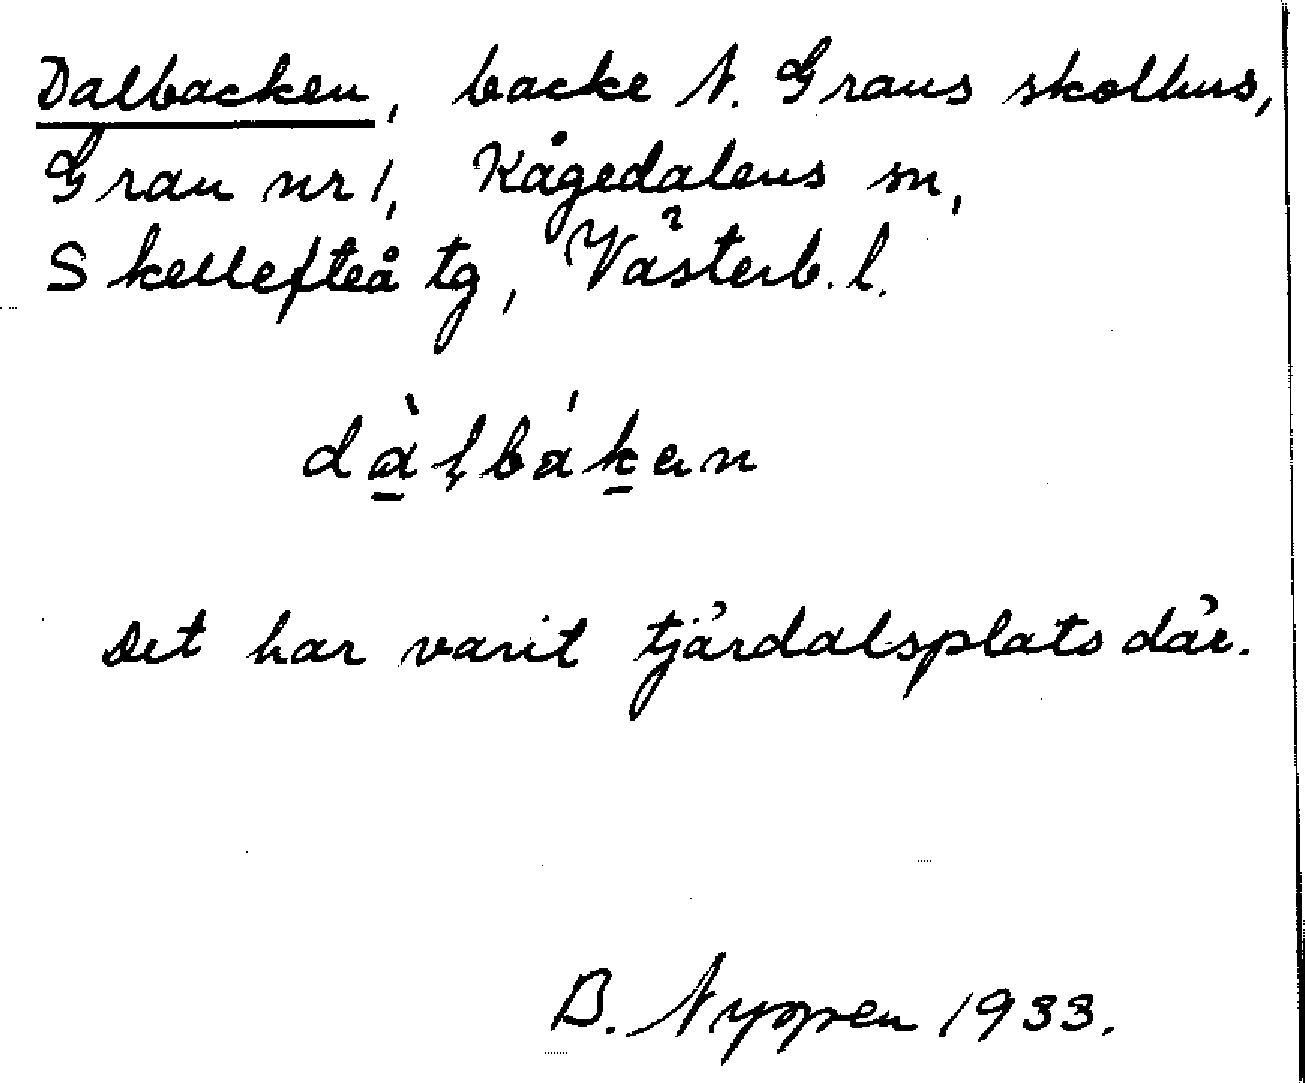 Dalbacken, backe N. Grans skolhus,
Gran nr 1, Kågedalens sn,
Skellefteå tg, Västerb. l.
dàl̥báken
Det har varit tjärdalsplats där.
B. Nyppen 1933.